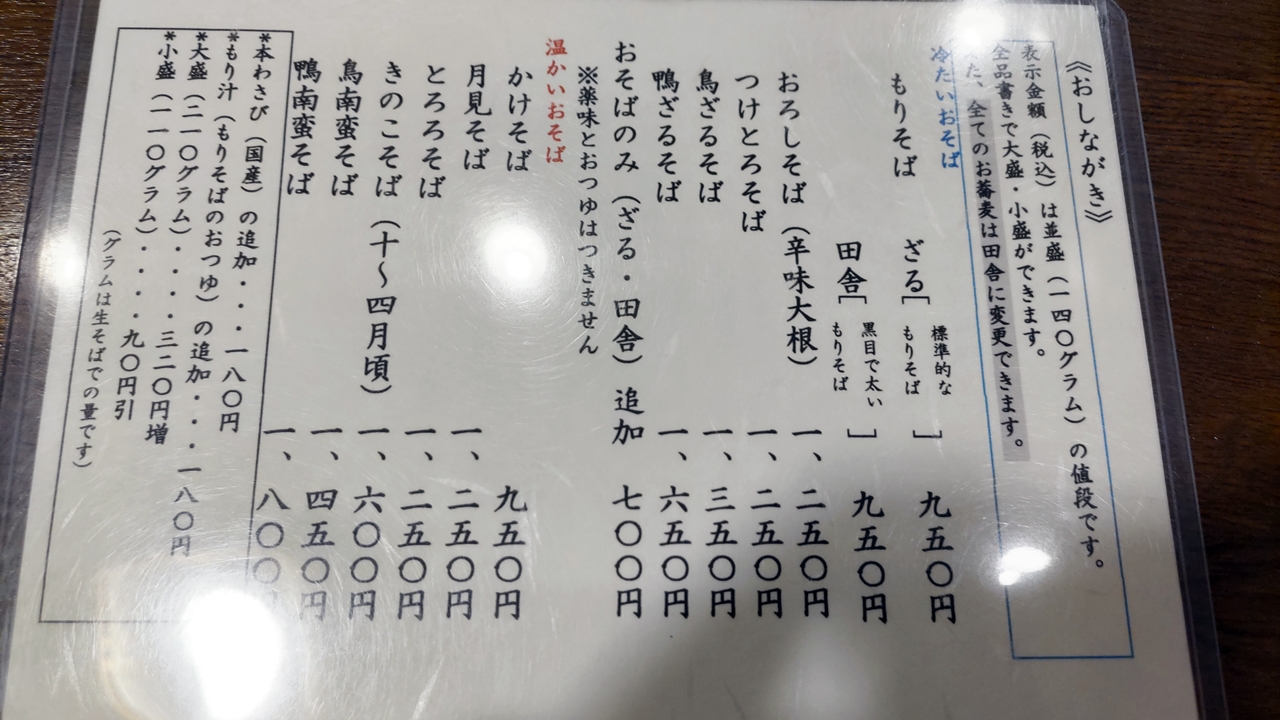 《おしながき》
表示金額（税込）は並盛（一四〇グラム）の値段です。
全品書きで大盛・小盛ができます。
た、全てのお蕎麦は田舎に変更できます。
冷たいおそば
もりそば
ざる［標準的なもりそば］九五〇円
田舎［黒目で太いもりそば］九五〇円
おろしそば（辛味大根）一、二五〇円
つけとろそば 一、二五〇円
鳥ざるそば 一、三五〇円
鴨ざるそば 一、六五〇円
おそばのみ（ざる・田舎）追加 七〇〇円
※薬味とおつゆはつきません
温かいおそば
かけそば 九五〇円
月見そば 一、二五〇円
とろろそば 一、二五〇円
きのこそば（十〜四月頃）一、六〇〇円
鳥南蛮そば 一、四五〇円
鴨南蛮そば 一、八〇〇円
*本わさび（国産）の追加・・・一八〇円
*もり汁（もりそばのおつゆ）の追加・・・一八〇円
*大盛（二一〇グラム）・・・・三二〇円増
*小盛（一一〇グラム）・・・・九〇円引
（グラムは生そばでの量です）